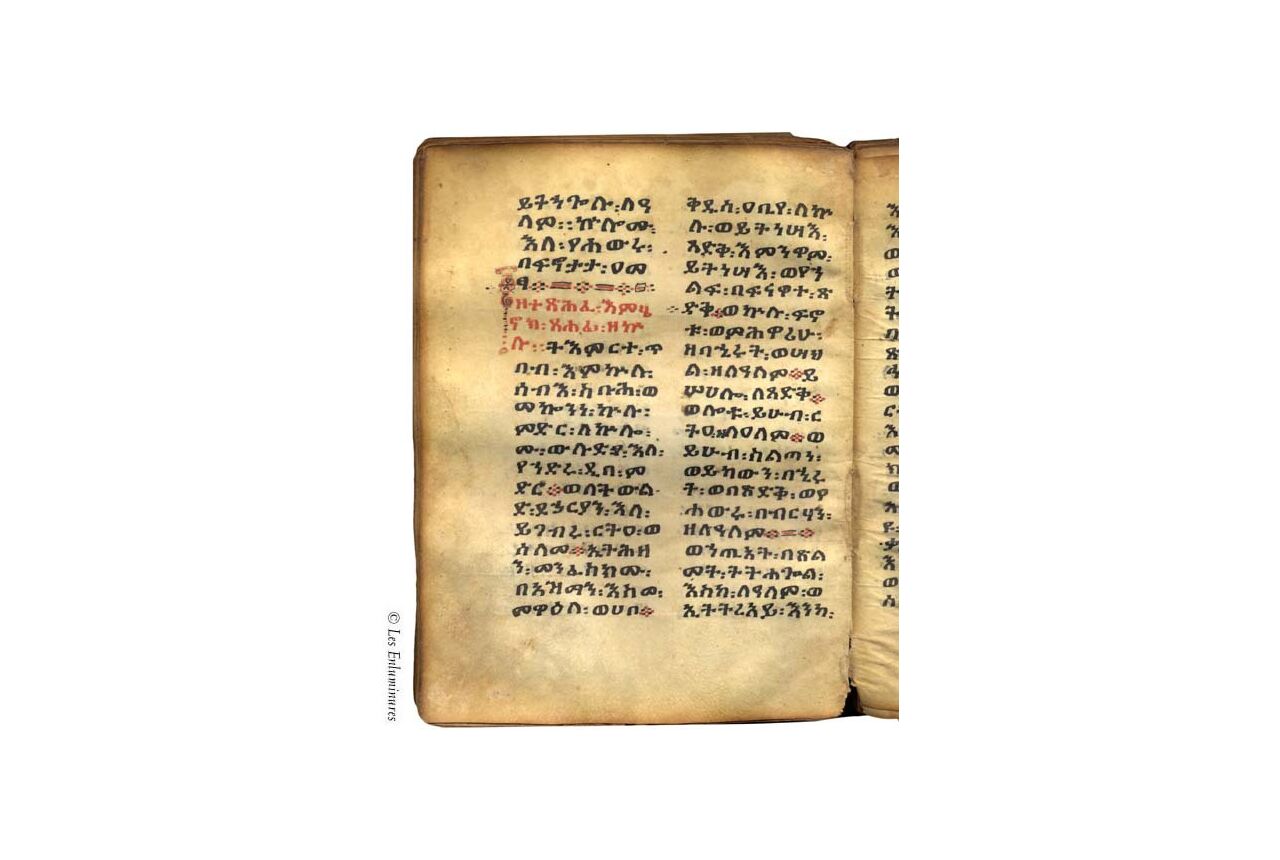 ይትኀጐሉ፡ለዓ
ለም፡፡ኵሎሙ፡
እለ፡የሐውሩ፡
በፍኖታት፡ዐመ
ፃ
ዘተጽሕፈ፡እምሄ
ኖክ፡ጸሐፊ፡ዘኵ
ሉ፡፡ትእምርተ፡ጥ
በብ፡እምኵሉ፡
ሰብእ፡ስቡሕ፡ወ
መኰንነ፡ኵሉ፡
ምድር፡ለኵሎ
ሙ፡ውሉድየ፡እለ፡
የኀድሩ፡ዲበ፡ም
ድር፡ወለትውል
ድ፡ደኃርያን፡እለ፡
ይገብሩ፡ርትዐ፡ወ
ሰላመ፡ኢትሕዘ
ን፡መንፈስክሙ፡
በአዝማን፡እስመ፡
መዋዕለ፡ወሀበ፡
ቅዱስ፡ዐቢየ፡ለኵ
ሉ፡ወይትነሣእ፡
ጻድቅ፡እምንዋም፡
ይትነሣእ፡ወየኀ
ልፍ፡በፍናዋተ፡ጽ
ድቅ፡ወኵሉ፡ፍኖ
ቱ፡ወምሕዋሪሁ፡
ዘበኂሩት፡ወሣህ
ል፡ዘለዓለም፡ይ
ሣሀሎ፡ለጻድቅ፡
ወሎቱ፡ይሁብ፡ር
ትዐ፡ለዓለም፡ወ
ይሁብ፡ስልጣነ፡
ወይከውን፡በኂሩ
ት፡ወበጽድቅ፡ወየ
ሐውሩ፡በብርሃን፡
ዘለዓለም
ወኀጢአት፡በጽል
መት፡ትትሐጐል፡
እስከ፡ለዓለም፡ወ
ኢትትረአይ፡እንከ፡
© Les Enluminures